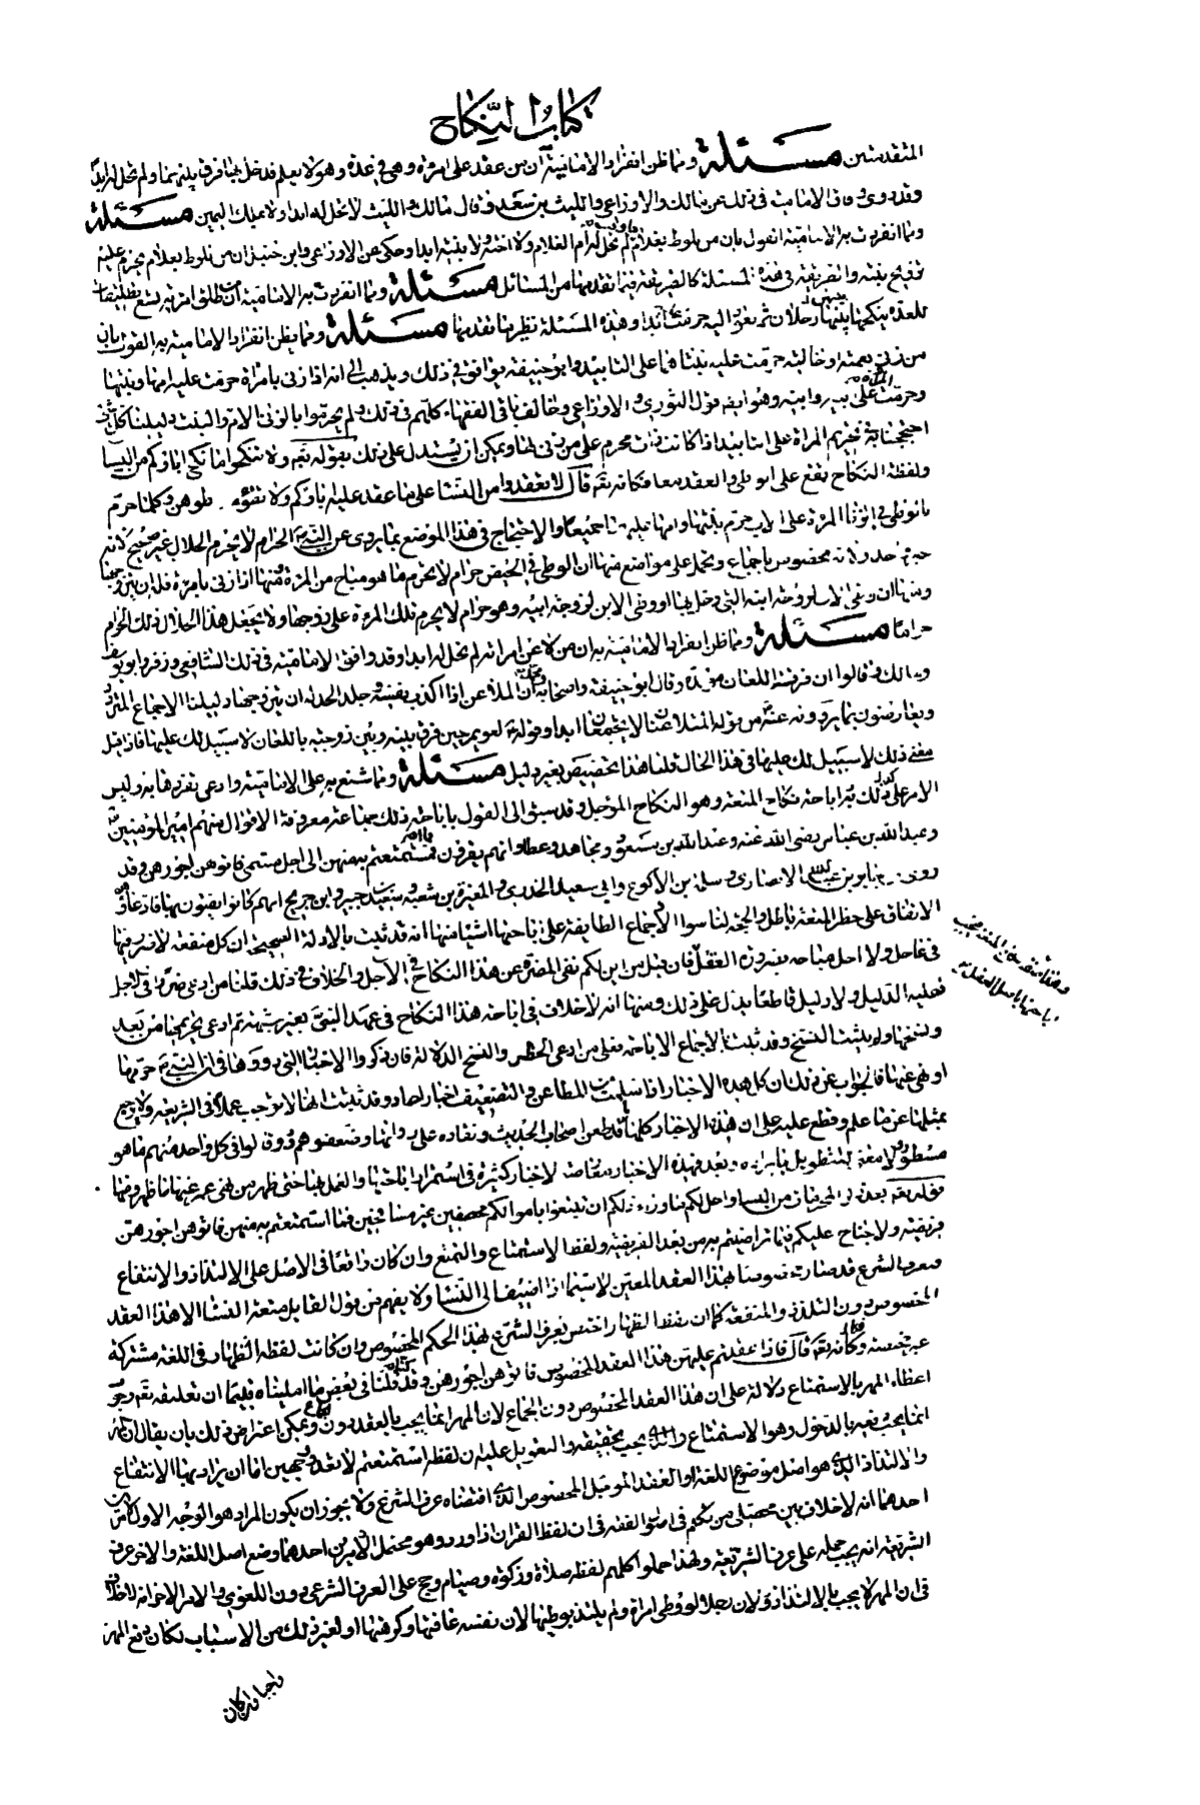 كتاب النكاح
المتقدمتين مسئلة ومما ظن انفراد الامامية به ان من عقد على امرأة وهي في عدة وهو لا يعلم فدخل بها فرق بينهما ولم تحل له ابدا
وقد روي وفاق الامامية في ذلك عن مالك والاوزاعي والليث بن سعد وقال مالك والليث لا تحل له ابدا ولا بملك اليمين مسئلة
ومما انفردت به الامامية القول بان من تلوط بغلام لم تحل له ام الغلام ولا اخته ولا بنته ابدا وحكي عن الاوزاعي وابن حنبل ان من تلوط بغلام يحرم عليه
تزويج بنته والطريقة في هذه المسئلة كالطريقة فيما تقدمها من المسائل مسئلة ومما انفردت به الامامية ان من طلق امرأته تسع تطليقات
للعدة ينكحها بينهن رجلان ثم تعود اليه حرمت عليه ابدا وهذه المسئلة نظيرها تقدمها مسئلة ومما يظن انفراد الامامية به القول بان
من زنى بعمته او خالته حرمت عليه بنتاهما على التأبيد وابو حنيفة يوافق في ذلك ويذهب الى انه اذا زنى بامرأة حرمت عليه امها وبنتها
وحرمت المرأة على ابيه وابنه وهو ايضا قول الثوري والاوزاعي وخالف باقي الفقهاء كلهم في ذلك ولم يحرموا بالزنى الام والبنت دليلنا كل شئ
احتججنا به في تحريم المرأة على التأبيد اذا كانت ذات محرم على من زنى بها ويمكن ان يستدل على ذلك بقوله تعه ولا تنكحوا ما نكح اباؤكم من النساء
ولفظة النكاح تقع على الوطي والعقد معا فكانه تعه قال لا تعقدوا من النسا على ما عقد عليه اباؤكم ولا تطؤا ما وطوهن وكلما حرم
بالوطي في الزنا المرأة على الاب حرم بنتها وامها عليهما جميعا والاحتجاج في هذا الموضع بما يروى عن النبي الحرام لا يحرم الحلال غير صحيح لانه
خبر واحد ولانه مخصوص باجماع ويحمل على مواضع منها ان الوطي في الحيض حرام لا يحرم ما هو مباح من المرأة ومنها اذا زنى بامرأة فله ان يتزوجها
ومنها ان وطي الاب لزوجة ابنه التي دخل بها او وطي الابن لزوجة ابيه وهو حرام لا يحرم تلك المرأة على زوجها ولا يجعل هذا الحلال ذلك الحرام
حراما مسئلة ومما ظن انفراد الامامية به ان من لاعن امرأته لم تحل له ابدا وقد وافق الامامية في ذلك الشافعي وزفر وابو يوسف
ومالك وقالوا ان فرقة اللعان مؤبدة وقال ابو حنيفة واصحابه ان الملاعن اذا اكذب نفسه وجلد الحد له ان يتزوجها دليلنا الاجماع المتردد
ويعارضون بما يروونه عنه من قوله المتلاعنان لا يجتمعان ابدا وقوله لعويمر حين فرق بينه وبين زوجته باللعان لا سبيل لك عليها فاذا قيل
معنى ذلك لا سبيل لك عليها في هذا الحال قلنا هذا تخصيص بغير دليل مسئلة ومما شنع به على الامامية وادعى تفردها به وليس
الامر على ذلك اباحة نكاح المتعة وهو النكاح المؤجل وقد سبق الى القول باباحة ذلك جماعة معروفة الاقوال منهم امير المؤمنين
وعبد الله بن عباس رضى الله عنه وعبد الله بن مسعود ومجاهد وعطا وانهم يقرؤن فما استمتعتم به منهن الى اجل مسمى فاتوهن اجورهن وقد
روى جابر بن عبد الله الانصاري وسلمة بن الاكوع وابي سعيد الخدري والمغيرة بن شعبة وسعيد بن جبير وابن جريج انهم كانوا يفتون بها فادعاؤهم
الاتفاق على حظر المتعة باطل والحجة لنا سوى اجماع الطايفة على اباحتها اشياء منها انه قد ثبت بالادلة الصحيحة ان كل منفعة لا ضرر فيها
في عاجل ولا اجل مباحة بضرورة العقل فان قيل من اين لكم نفي المضرة عن هذا النكاح في الاجل والخلاف في ذلك قلنا من ادعى ضررا في الاجل
فعليه الدليل ولا دليل قاطعا يدل على ذلك ومنها انه لا خلاف في اباحة هذا النكاح في عهد النبي بغير شبهة ثم ادعي تحريمها من بعد
ونسخها ولم يثبت النسخ وقد ثبت بالاجماع الاباحة فعلى من ادعى الحظر والنسخ الدلالة فان ذكروا الاخبار التي رووها في ان النبي حرمها
او نهى عنها فالجواب عن ذلك ان كل هذه الاخبار اذا سلمت من المطاعن والتضعيف اخبار احاد وقد ثبت انها لا توجب عملا في الشريعة ولا يرجع
بمثلها عن ما علم وقطع عليه على ان هذه الاخبار كلها قد طعن اصحاب الحديث ونقاده على رواتها وضعفوهم وقالوا في كل واحد منهم ما هو
مسطور لا معنى للتطويل بايراده وبعد فهذه الاخبار معارضة لاخبار كثيرة في استمرار اباحتها والعمل بها حتى ظهر من نهي عمر عنها ما ظهر ومنها
قوله تعه بعد ذكر المحرمات من النساء واحل لكم ما وراء ذلكم ان تبتغوا باموالكم محصنين غير مسافحين فما استمتعتم به منهن فاتوهن اجورهن
فريضة ولا جناح عليكم فيما تراضيتم به من بعد الفريضة ولفظ الاستمتاع والتمتع وان كان واقعا في الاصل على الالتذاذ والانتفاع
فبعرف الشرع قد صار مخصوصا بهذا العقد المعين لا سيما اذا اضيف الى النسا ولا يفهم من قول القايل متعة النسا الا هذا العقد
المخصوص دون التلذذ والمنفعة كما ان لفظ الظهار اختص بعرف الشرع بهذا الحكم المخصوص وان كانت لفظة الظهار في اللغة مشتركة
غير مختصة وكانه تعه قال فاذا عقدتم عليهن هذا العقد المخصوص فاتوهن اجورهن وقد قلنا في بعض ما امليناه قديما ان تعليقه تعه وجوب
اعطاء المهر بالاستمتاع دلالة على ان هذا العقد المخصوص دون الجماع لان المهر انما يجب بالعقد دون الجماع ويمكن اعتراض ذلك بان يقال ان المهر
انما يجب دفعه بالدخول وهو الاستمتاع والذي يجب تحقيقه والتعويل عليه ان لفظة استمتعتم لا تعدو وجهين اما ان يراد بها الانتفاع
والالتذاذ الذي هو اصل موضوع اللغة او العقد المؤجل المخصوص الذي اقتضاه عرف الشرع ولا يجوز ان يكون المراد هو الوجه الاول لامرين
احدهما انه لا خلاف بين محصلي من تكلم في اصول الفقه في ان لفظ القران اذا ورد وهو محتمل لامرين احدهما وضع اصل اللغة والاخر عرف
الشريعة انه يجب حمله على عرف الشريعة ولهذا حملوا كلهم لفظة صلاة وزكوة وصيام وحج على العرف الشرعي دون اللغوي والامر الاخر انه لا خلاف
في ان المهر لا يجب بالالتذاذ لان رجلا لو وطى امراة ولم يلتذ بوطيها لان نفسه عافتها وكرهتها او لغير ذلك من الاسباب لكان دفع المهر
واجبا وان كان
باحتها باصل العقل